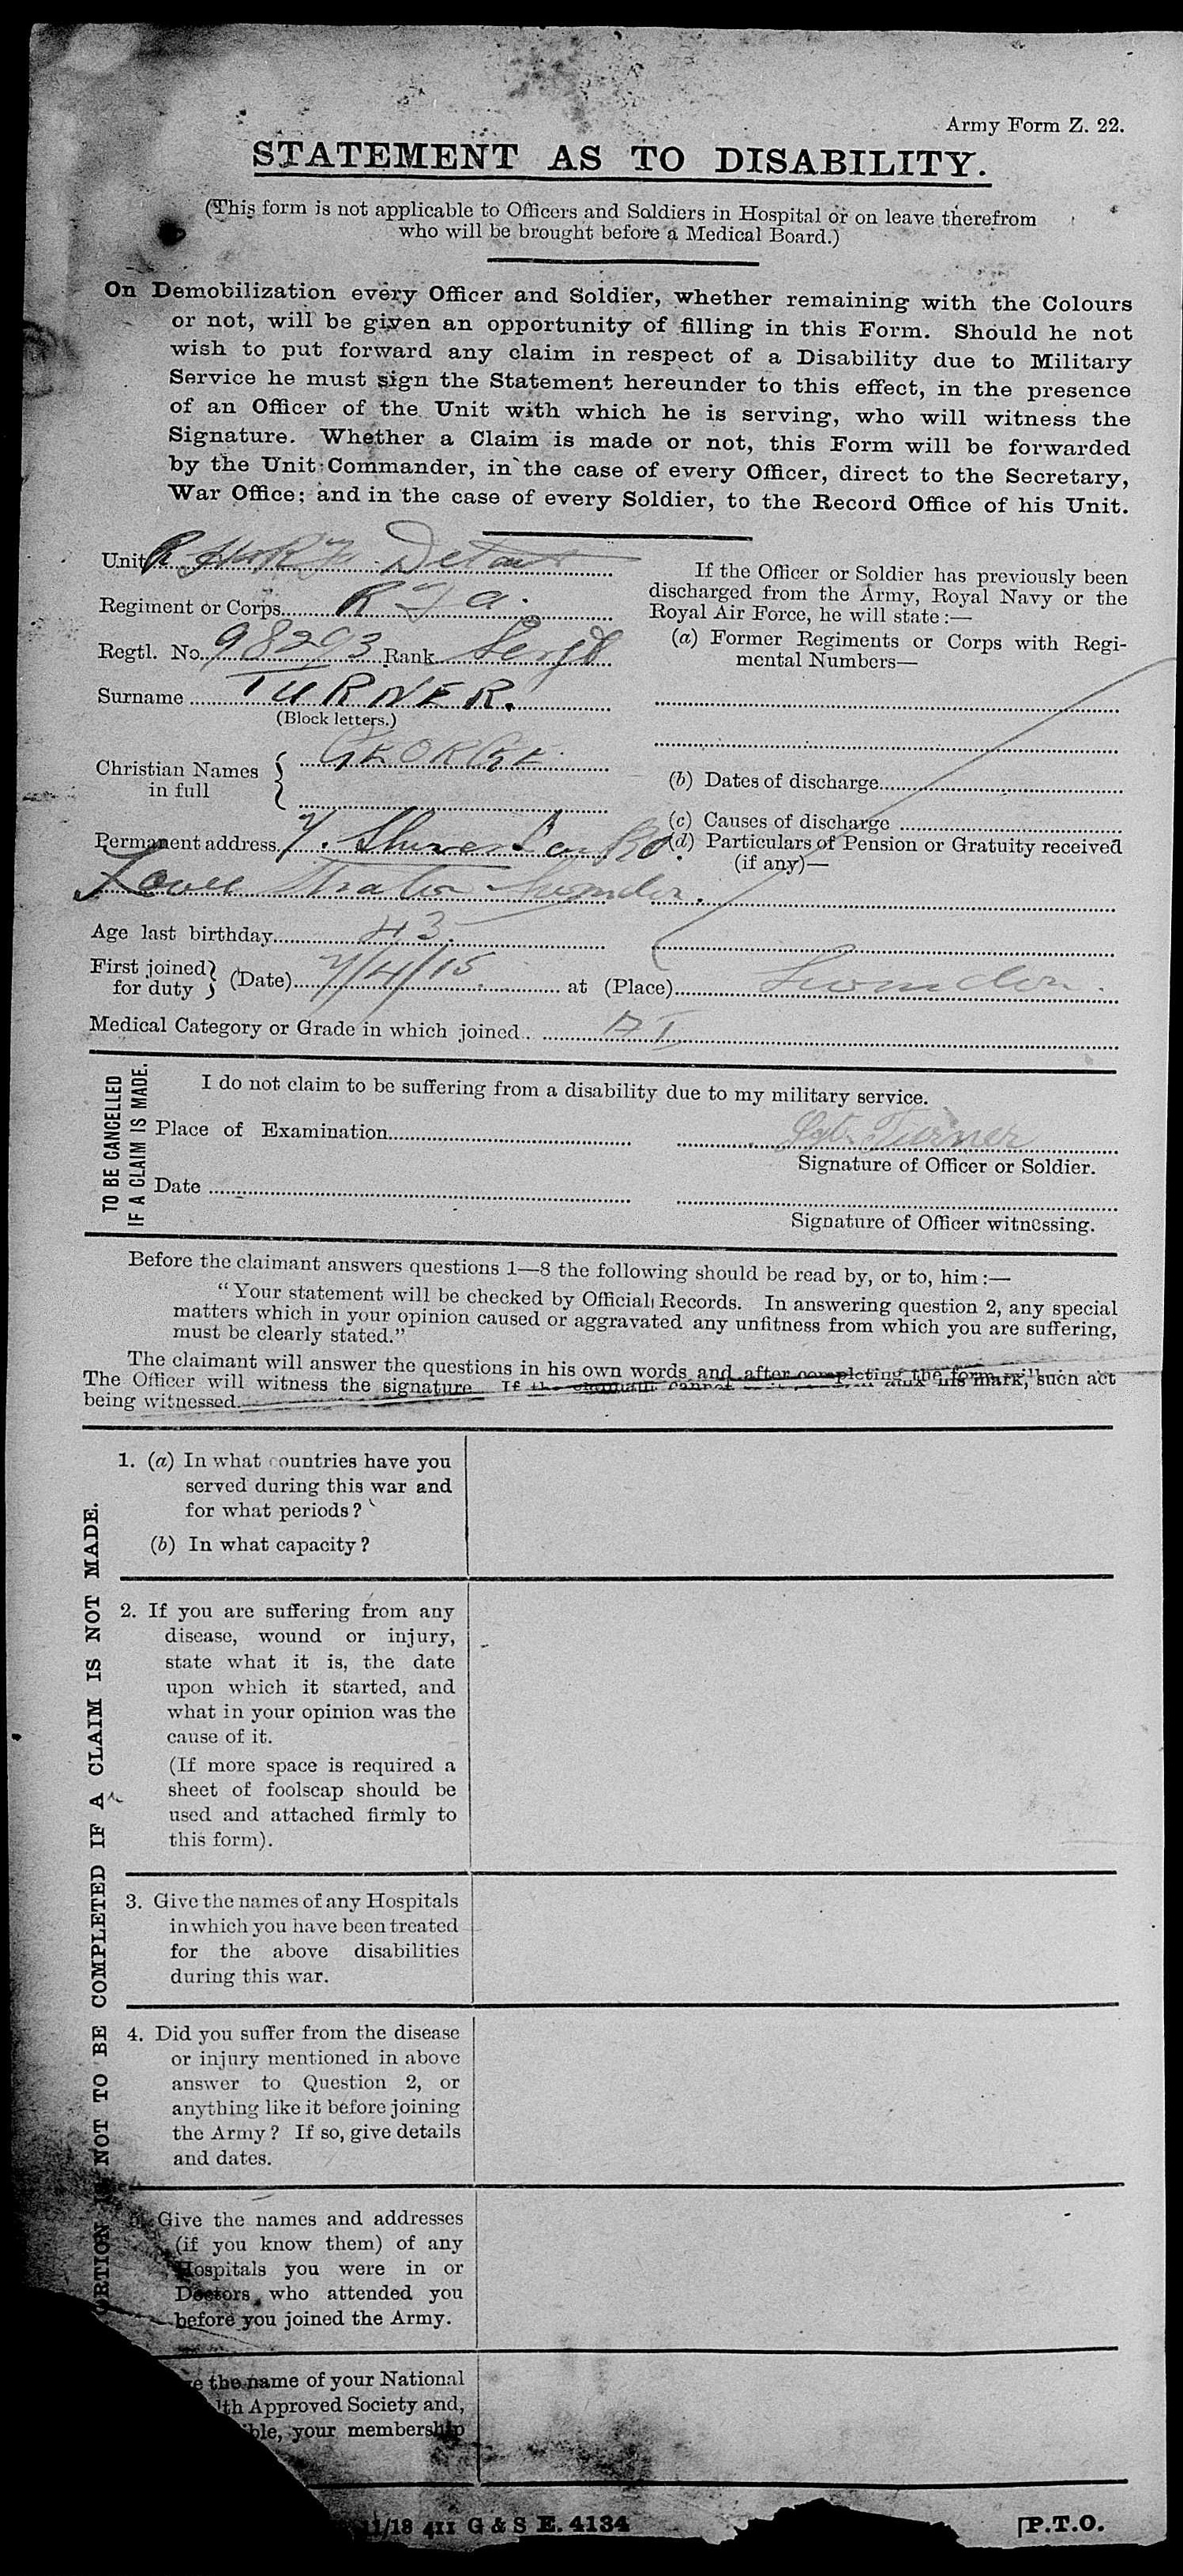 Army Form Z. 22.
STATEMENT AS TO DISABILITY.
(This form is not applicable to Officers and Soldiers in Hospital or on leave therefrom
who will be brought before a Medical Board.)
On Demobilization every Officer and Soldier, whether remaining with the Colours
or not, will be given an opportunity of filling in this Form. Should he not
wish to put forward any claim in respect of a Disability due to Military
Service he must sign the Statement hereunder to this effect, in the presence
of an Officer of the Unit with which he is serving, who will witness the
Signature. Whether a Claim is made or not, this Form will be forwarded
by the Unit Commander, in the case of every Officer, direct to the Secretary,
War Office; and in the case of every Soldier, to the Record Office of his Unit.
Unit
Regiment or Corps R F A.
Regtl. No. 98293 Rank Sergt
Surname TURNER.
(Block letters.)
Christian Names GEORGE
in full
Permanent address 7.
Age last birthday 43.
If the Officer or Soldier has previously been
discharged from the Army, Royal Navy or the
Royal Air Force, he will state:—
(a) Former Regiments or Corps with Regi-
mental Numbers—
(b) Dates of discharge
(c) Causes of discharge
(d) Particulars of Pension or Gratuity received
(if any)—
First joined
for duty (Date) 7/4/15 at (Place)
Medical Category or Grade in which joined A I
TO BE CANCELLED
IF A CLAIM IS MADE.
I do not claim to be suffering from a disability due to my military service.
Place of Examination Sgt. Turner
Signature of Officer or Soldier.
Date
Signature of Officer witnessing.
Before the claimant answers questions 1—8 the following should be read by, or to, him:—
"Your statement will be checked by Official Records. In answering question 2, any special
matters which in your opinion caused or aggravated any unfitness from which you are suffering,
must be clearly stated."
The claimant will answer the questions in his own words and after completing the form will
The Officer will witness the signature. If the claimant cannot his mark, such act
being witnessed.
PORTION IS NOT TO BE COMPLETED IF A CLAIM IS NOT MADE.
1. (a) In what countries have you
served during this war and
for what periods?
(b) In what capacity?
2. If you are suffering from any
disease, wound or injury,
state what it is, the date
upon which it started, and
what in your opinion was the
cause of it.
(If more space is required a
sheet of foolscap should be
used and attached firmly to
this form).
3. Give the names of any Hospitals
in which you have been treated
for the above disabilities
during this war.
4. Did you suffer from the disease
or injury mentioned in above
answer to Question 2, or
anything like it before joining
the Army? If so, give details
and dates.
Give the names and addresses
(if you know them) of any
Hospitals you were in or
Doctors who attended you
before you joined the Army.
the name of your National
Approved Society and,
your membership
11/18 411 G & S E. 4134
[P.T.O.